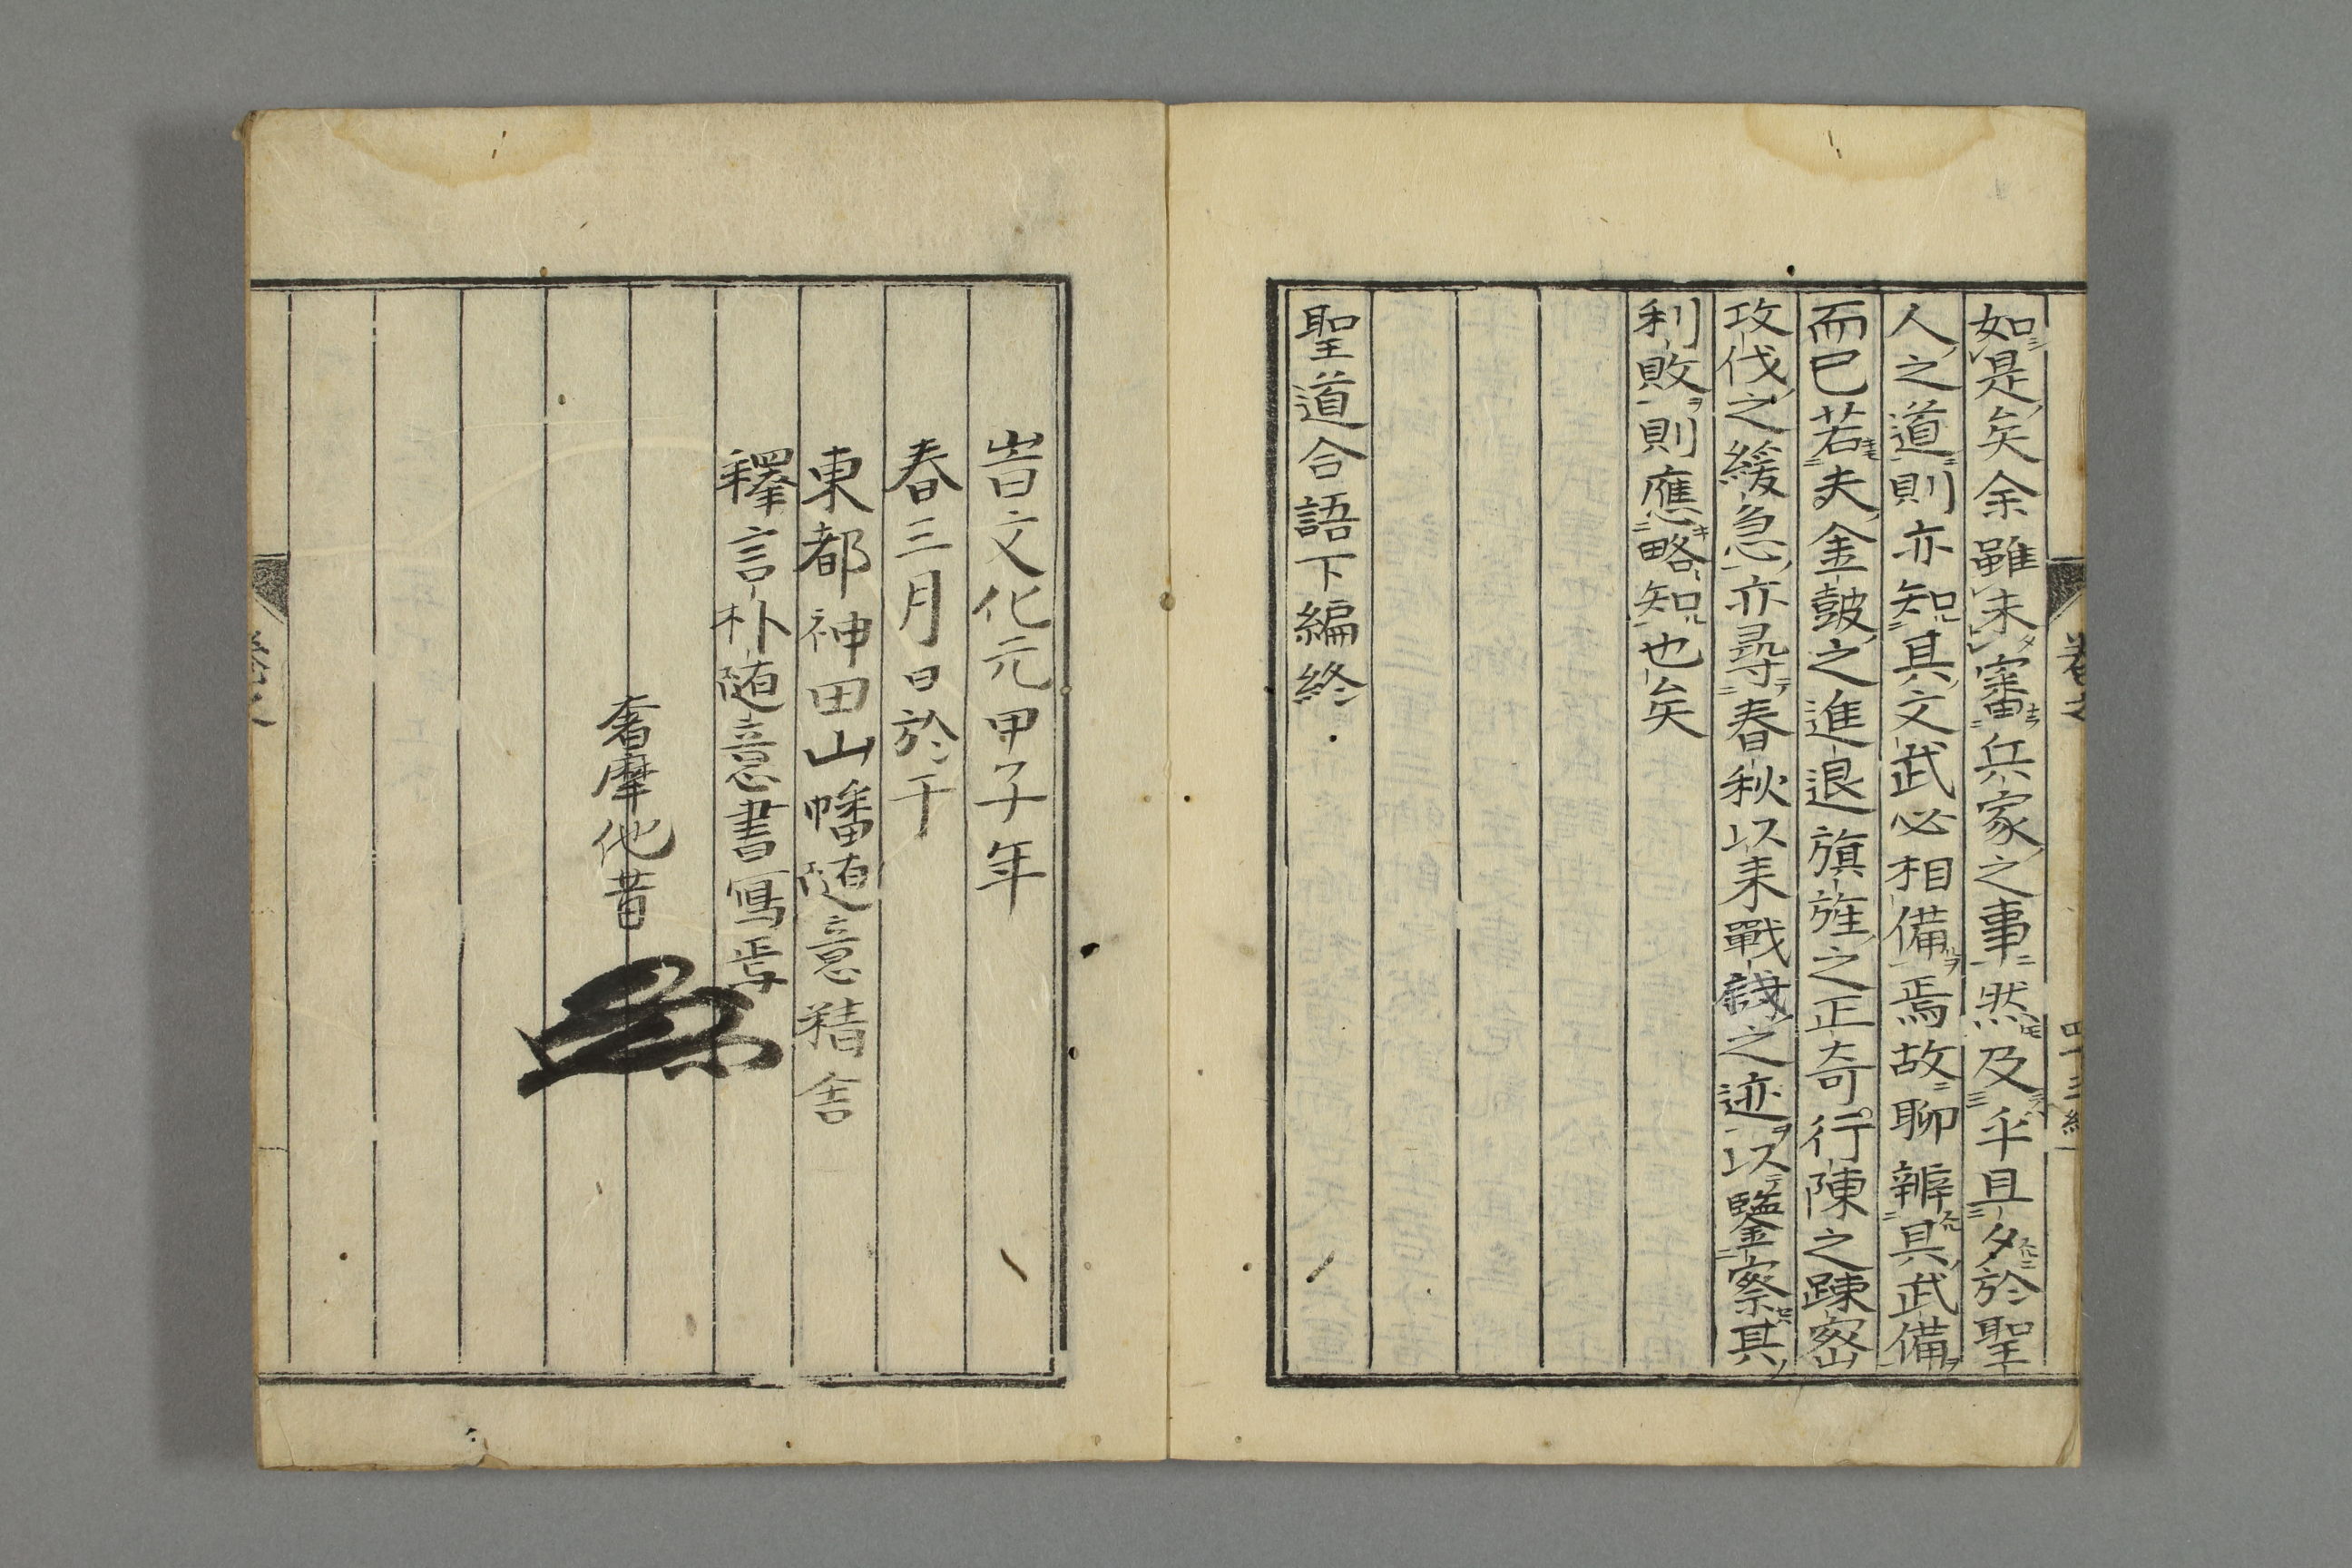 如是矣余雖未審兵家之事然及乎且夕於聖
人之道則亦知其文武必相備焉故聊辨具武備
而已若夫金鼓之進退旗旌之正奇行陳之踈密
攻伐之緩急亦尋春秋以来戰諓之迹以鑒察其
利敗則應略知也矣
聖道合語下編終
旹文化元甲子年
春三月日於干
東都神田山幡随意精舎
釋言朴随意書寫焉
奢摩他昔